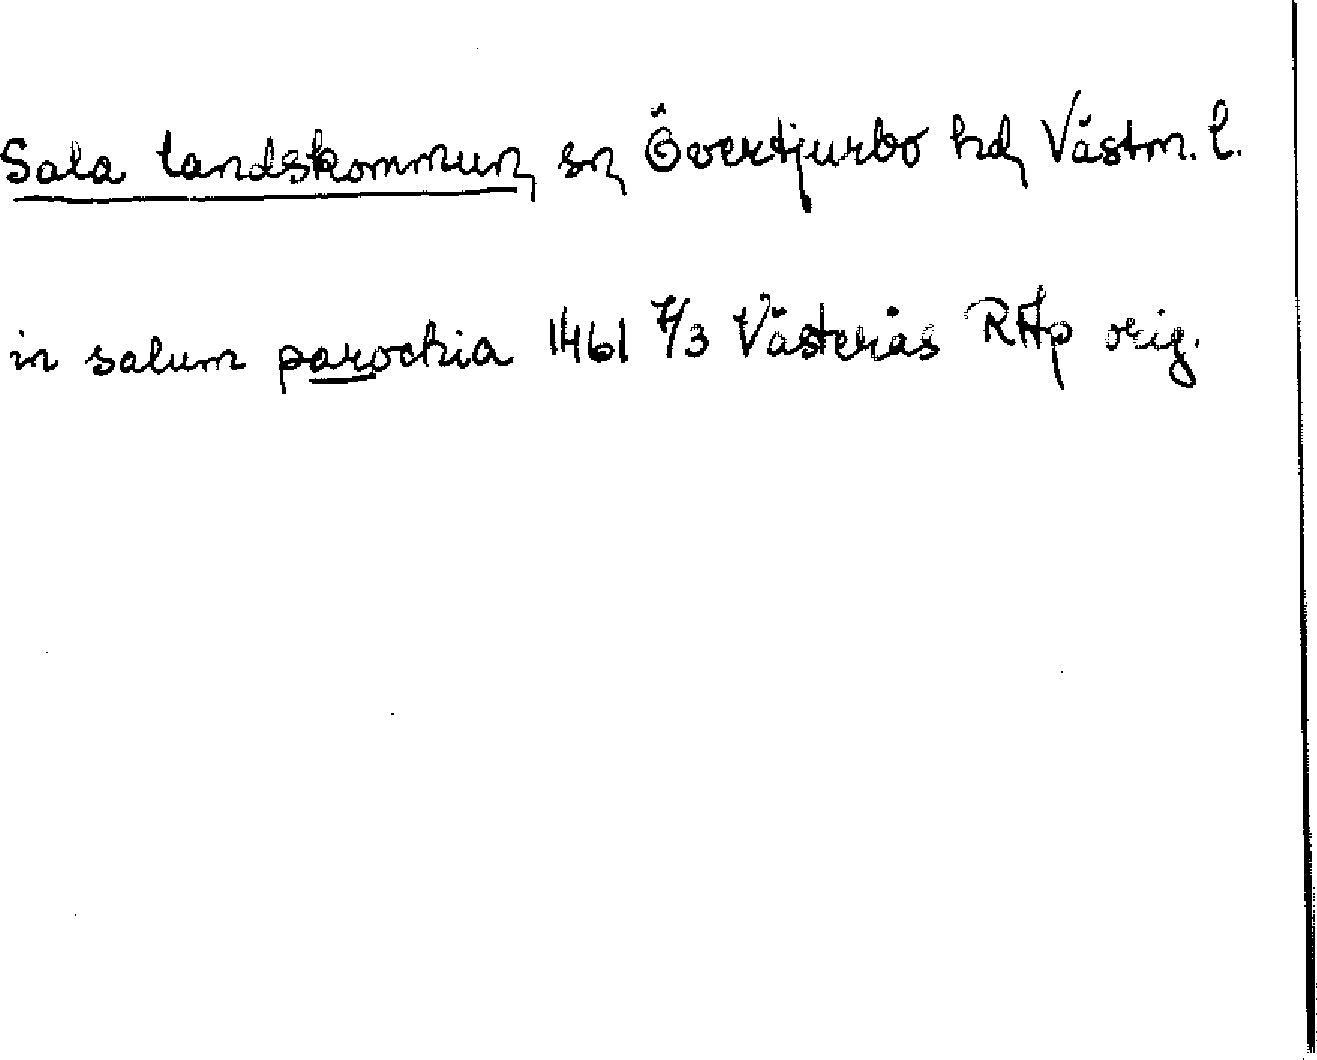 Sala landskommun, sn, Övertjurbo hd, Västm. l.
in salum parochia 1461 7/3 Västerås RAp orig.